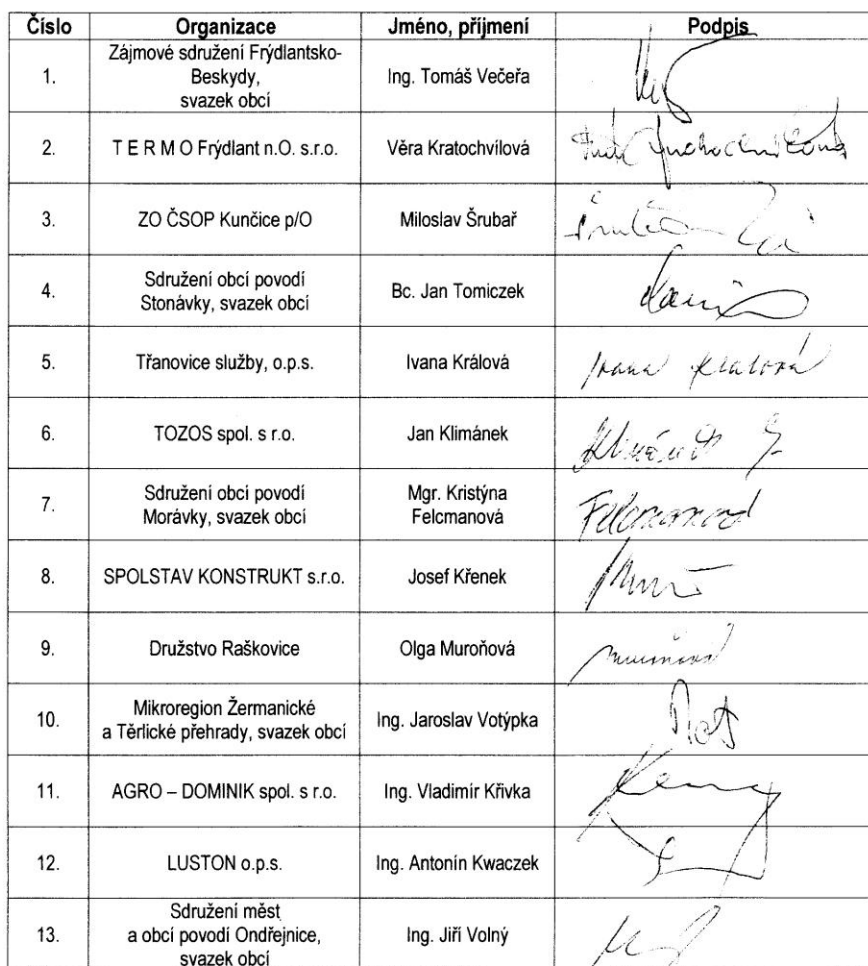 Číslo Organizace Jméno, příjmení Podpis
Zájmové sdružení Frýdlantsko-
1. Beskydy, Ing. Tomáš Večeřa
svazek obcí
2. T E R M O Frýdlant n.O. s.r.o. Věra Kratochvílová
3. ZO ČSOP Kunčice p/O Miloslav Šrubař
Sdružení obcí povodí
4. Stonávky, svazek obcí Bc. Jan Tomiczek
5. Třanovice služby, o.p.s. Ivana Králová Ivana Králová
6. TOZOS spol. s r.o. Jan Klimánek
7. Sdružení obcí povodí Mgr. Kristýna
Morávky, svazek obcí Felcmanová Felcmanová
8. SPOLSTAV KONSTRUKT s.r.o. Josef Křenek
9. Družstvo Raškovice Olga Muroňová
Mikroregion Žermanické
10. a Těrlické přehrady, svazek obcí Ing. Jaroslav Votýpka
11. AGRO – DOMINIK spol. s r.o. Ing. Vladimír Křivka
12. LUSTON o.p.s. Ing. Antonín Kwaczek
Sdružení měst
13. a obcí povodí Ondřejnice, Ing. Jiří Volný
svazek obcí